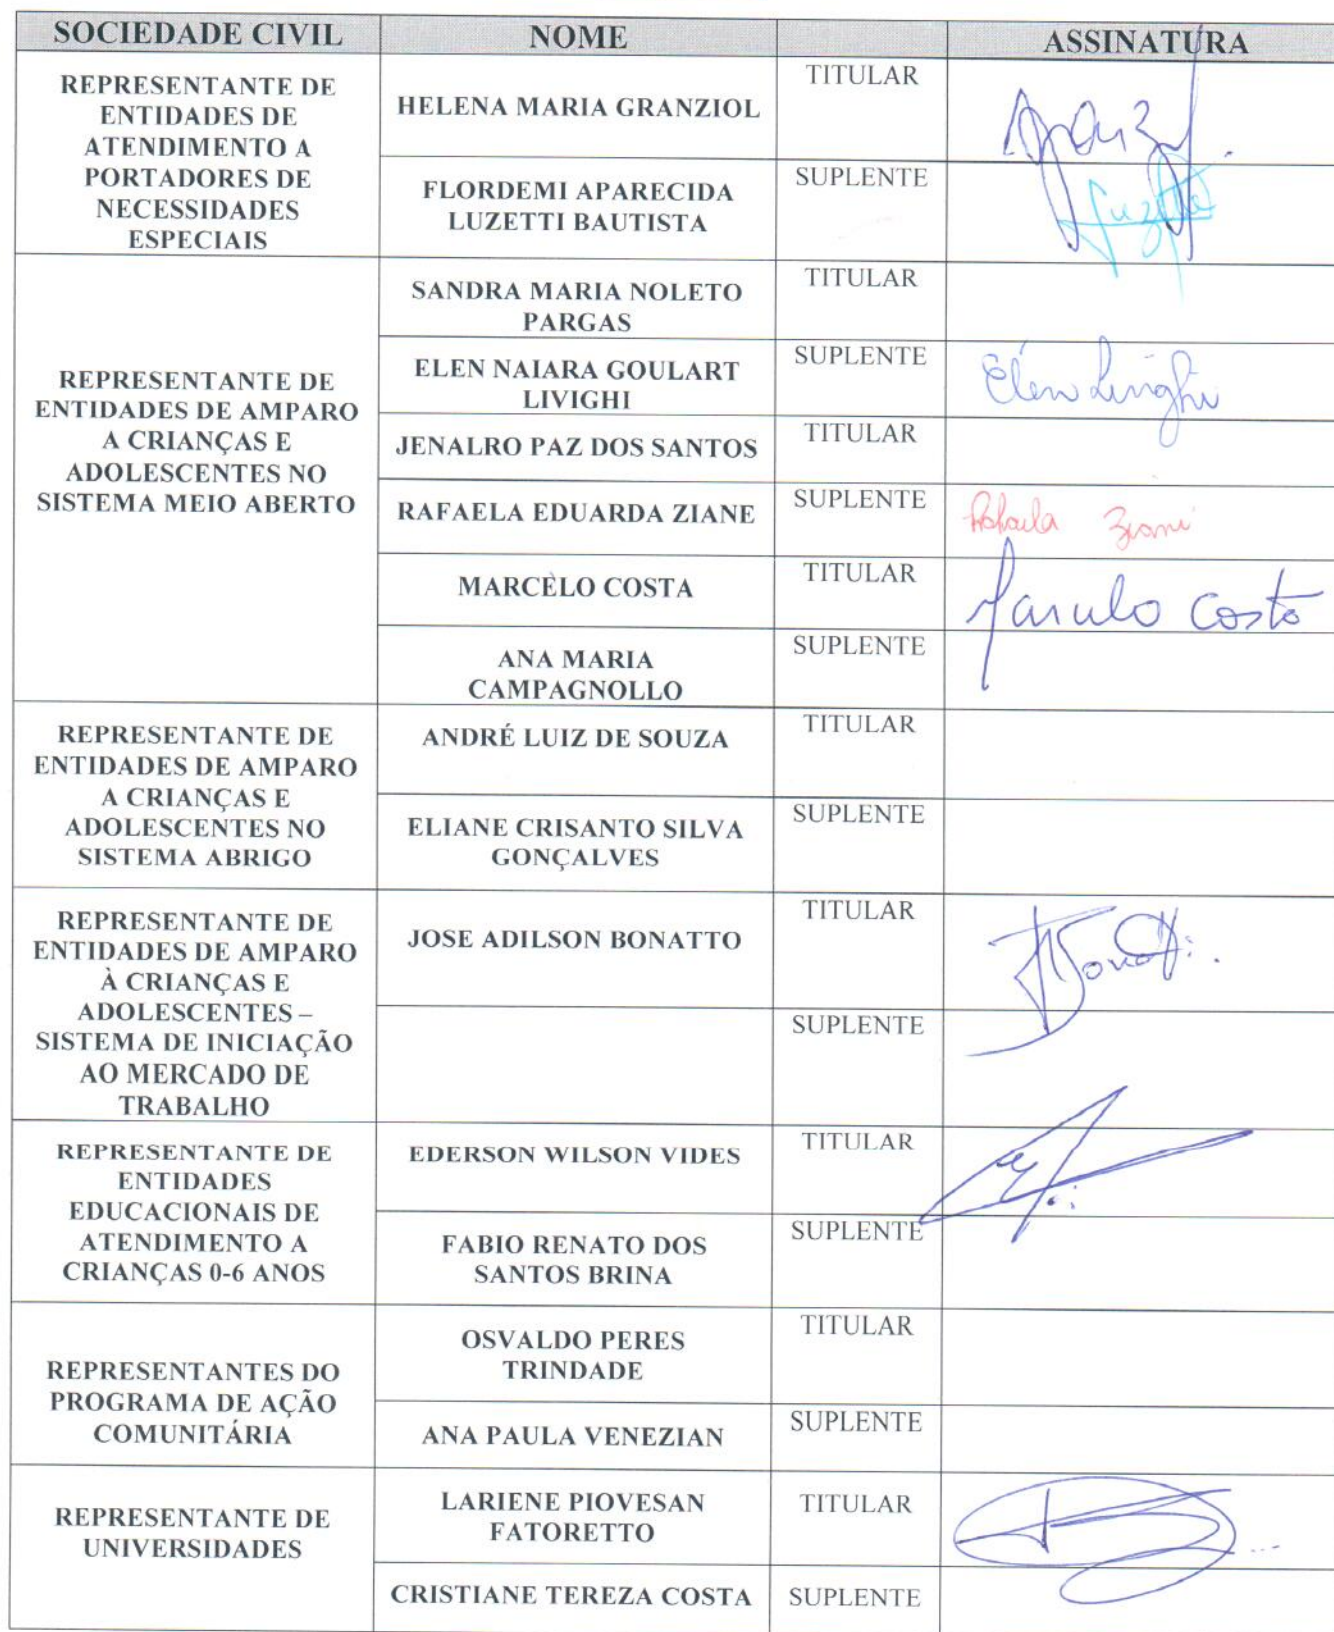 SOCIEDADE CIVIL NOME ASSINATURA
REPRESENTANTE DE
ENTIDADES DE
ATENDIMENTO A
PORTADORES DE
NECESSIDADES
ESPECIAIS
HELENA MARIA GRANZIOL
TITULAR
FLORDEMI APARECIDA
LUZETTI BAUTISTA
SUPLENTE
REPRESENTANTE DE
ENTIDADES DE AMPARO
A CRIANÇAS E
ADOLESCENTES NO
SISTEMA MEIO ABERTO
SANDRA MARIA NOLETO
PARGAS
TITULAR
ELEN NAIARA GOULART
LIVIGHI
SUPLENTE
Elen Livighi
JENALRO PAZ DOS SANTOS
TITULAR
RAFAELA EDUARDA ZIANE
SUPLENTE
Rafaela Ziani
MARCELO COSTA
TITULAR
Marcelo Costa
ANA MARIA
CAMPAGNOLLO
SUPLENTE
REPRESENTANTE DE
ENTIDADES DE AMPARO
A CRIANÇAS E
ADOLESCENTES NO
SISTEMA ABRIGO
ANDRÉ LUIZ DE SOUZA
TITULAR
ELIANE CRISANTO SILVA
GONÇALVES
SUPLENTE
REPRESENTANTE DE
ENTIDADES DE AMPARO
À CRIANÇAS E
ADOLESCENTES –
SISTEMA DE INICIAÇÃO
AO MERCADO DE
TRABALHO
JOSE ADILSON BONATTO
TITULAR
SUPLENTE
REPRESENTANTE DE
ENTIDADES
EDUCACIONAIS DE
ATENDIMENTO A
CRIANÇAS 0-6 ANOS
EDERSON WILSON VIDES
TITULAR
FABIO RENATO DOS
SANTOS BRINA
SUPLENTE
REPRESENTANTES DO
PROGRAMA DE AÇÃO
COMUNITÁRIA
OSVALDO PERES
TRINDADE
TITULAR
ANA PAULA VENEZIAN
SUPLENTE
REPRESENTANTE DE
UNIVERSIDADES
LARIENE PIOVESAN
FATORETTO
TITULAR
CRISTIANE TEREZA COSTA
SUPLENTE